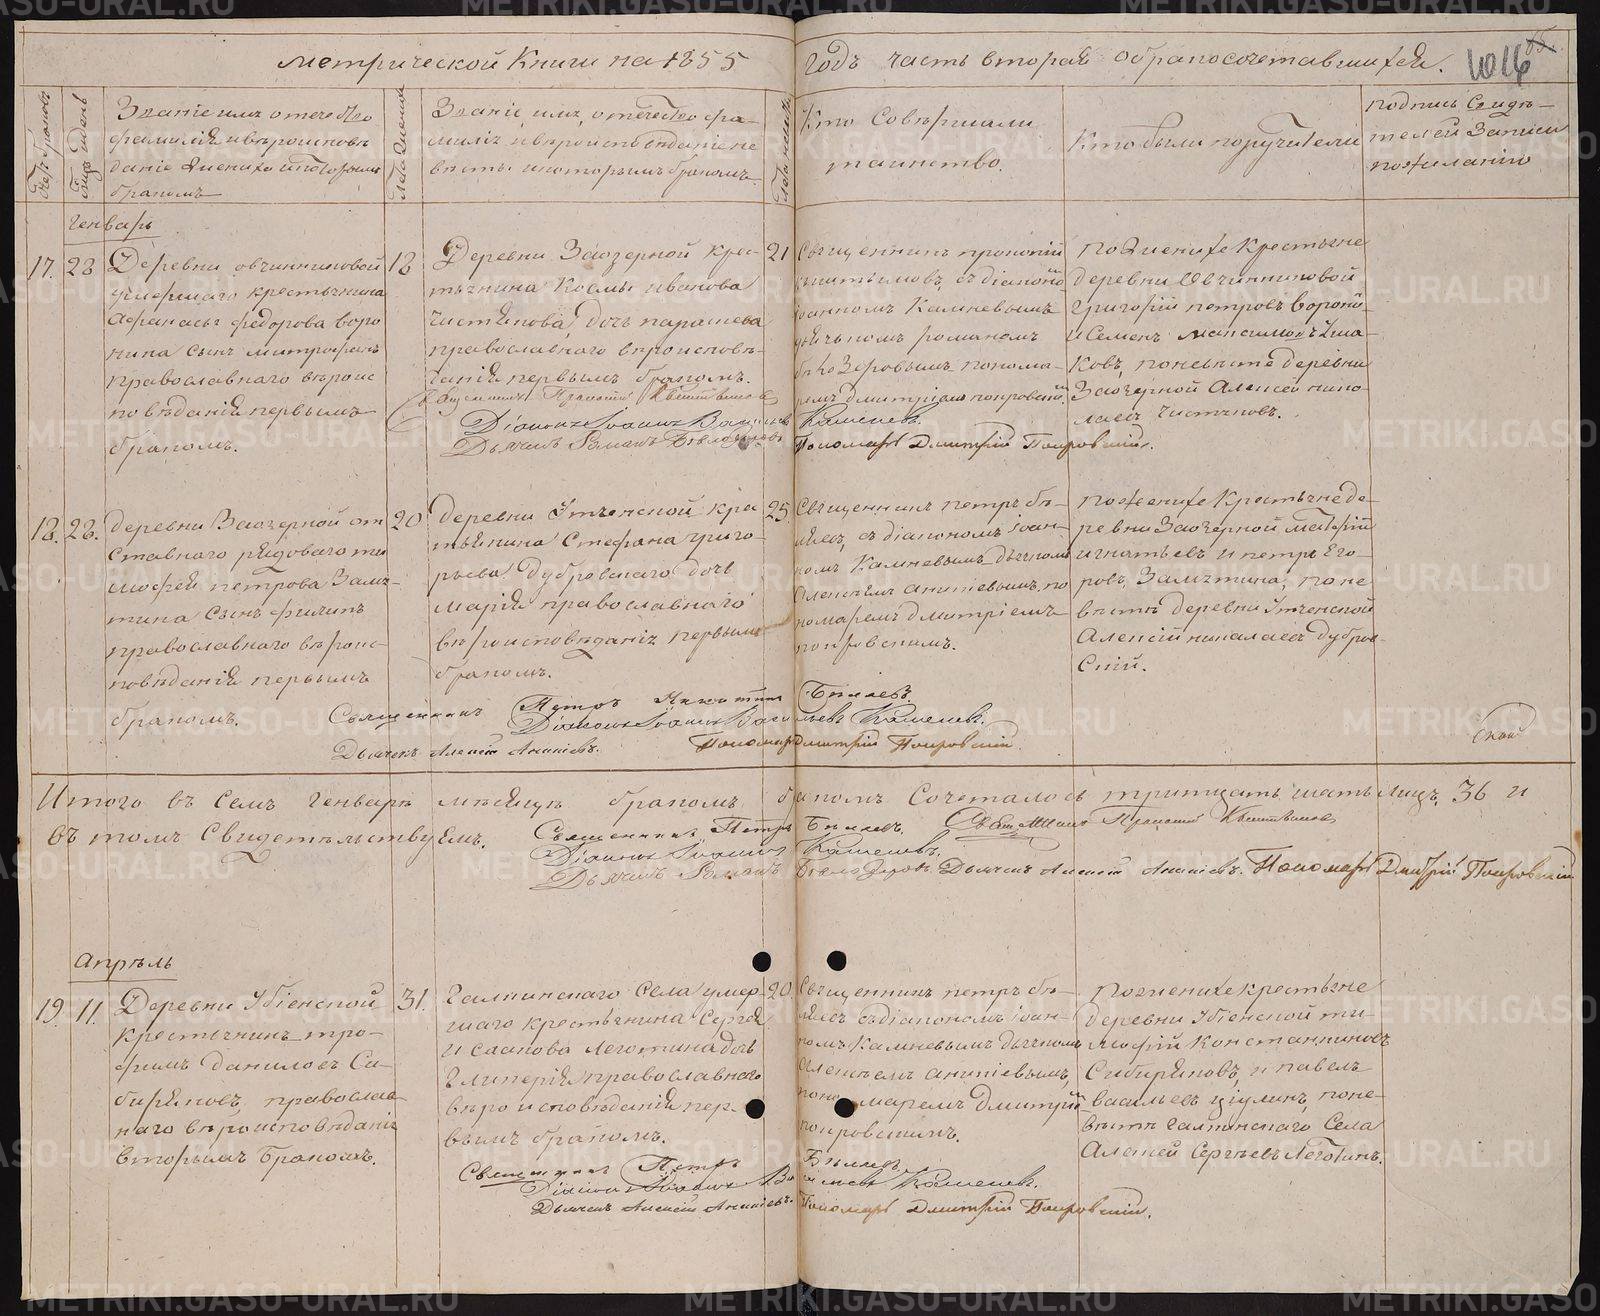 метрической Книги на 1855
годъ часть вторая о бракосочетавшихся.
Званіе имъ отечество
фамилія и вѣроисповѣ
даніе жениха и которымъ
бракомъ
Званіе, имъ, отечество фа-
милія и вѣроисповѣданіе не
весты и которымъ бракомъ
Кто Совершали
таинство.
Кто были поручители
подпись Свидѣ-
телей Записи
по желанію
Генварь
17.
23
Деревни Овчинниковой
умершаго крестьянина
Афанасья Федорова Воро
нина сынъ митрофанъ
православнаго вѣроис
повѣданія первымъ
бракомъ.
18
Деревни Заозерной крес
тьянина Косьмы Иванова
Чистякова, дочь парашева
православнаго вѣроисповѣ-
данія первымъ бракомъ.
21
Священникъ прокопій
съ діакономъ
іоанномъ Камневымъ
дьячкомъ романомъ
бѣлозеровымъ понома-
ремъ дмитріемъ покровскимъ
по женихе Крестьяне
деревни Овчинниковой
Григорій петровъ Воронинъ
и Семенъ максимовъ
ковъ, по невѣсте деревни
Заозерной Алексей нико-
лаевъ Чистяковъ.
Священникъ Прокопій
Діаконъ Іоаннъ Васильевъ Камневъ.
Дьячекъ Романъ Бѣлозеровъ
Пономарь Дмитрій Покровскій.
18.
23.
Деревни Заозерной от
ставнаго рядоваго ти
мофея петрова Замя-
тина Сынъ филипъ
православнаго вѣроис-
повѣданія первымъ
бракомъ.
20
Деревни Утченской кре
тьянина Стефана григо-
рьева Дубровскаго дочь
марія православнаго
вѣроисповѣданія первымъ
бракомъ.
25
Священникъ петръ бѣ-
ляевъ, съ діакономъ іоан-
номъ Камневымъ дьячкомъ
Алексѣемъ ананіевымъ, по
номаремъ дмитріемъ
покровскимъ.
по женихе Крестьяне де-
ревни Заозерной матвѣй
игнатьевъ и петръ Его-
ровъ, Замятина, по не
вѣстѣ деревни Утченской
Алексій николаевъ дубров-
скій.
Священникъ Петръ Никитинъ Бѣляевъ
Діаконъ Іоаннъ Васильевъ Камневъ.
Дьячекъ Алексѣй Ананіевъ.
Пономарь Дмитрій Покровскій.
Итого въ Семъ Генварѣ мѣсяцѣ бракомъ бракомъ Сочеталось тритцать шать лицъ, 36 и
въ томъ Свидетельствуемъ.
Священникъ Петръ Бѣляевъ. Священникъ Прокопій
Діаконъ Іоаннъ Камневъ.
Дьячекъ Романъ Бѣлозеровъ Дьячекъ Алексѣй Ананіевъ. Пономарь Дмитрій Покровскій
апрѣль
19.
11.
Деревни Убіенской
Крестьянинъ тро-
фимъ даниловъ Си-
биряковъ, православ
наго вѣроисповѣданія
вторымъ бракомъ.
31.
Галкинскаго Села умер-
шаго крестьянина Сергея
Исаакова Леготина дочь
Гликерія православнаго
вѣроисповѣданія пер-
вымъ бракомъ.
20
Священникъ петръ бѣ-
ляевъ съ діакономъ іоан-
номъ Камневымъ дьячкомъ
Алексѣемъ ананіевымъ,
пономаремъ дмитріемъ
покровскимъ.
по женихе крестьяне
деревни Убіенской ти-
мофій Константиновъ
Сибиряковъ, и павелъ
васильевъ шулинъ, поне-
вѣстѣ Галкинскаго Села
Алексѣй Сергѣевъ Леготинъ.
Священникъ Петръ Бѣляевъ
Діаконъ Іоаннъ Васильевъ Камневъ.
Дьячекъ Алексѣй Ананіевъ.
Пономарь Дмитрій Покровскій.
METRIKI.GASO-URAL.RU